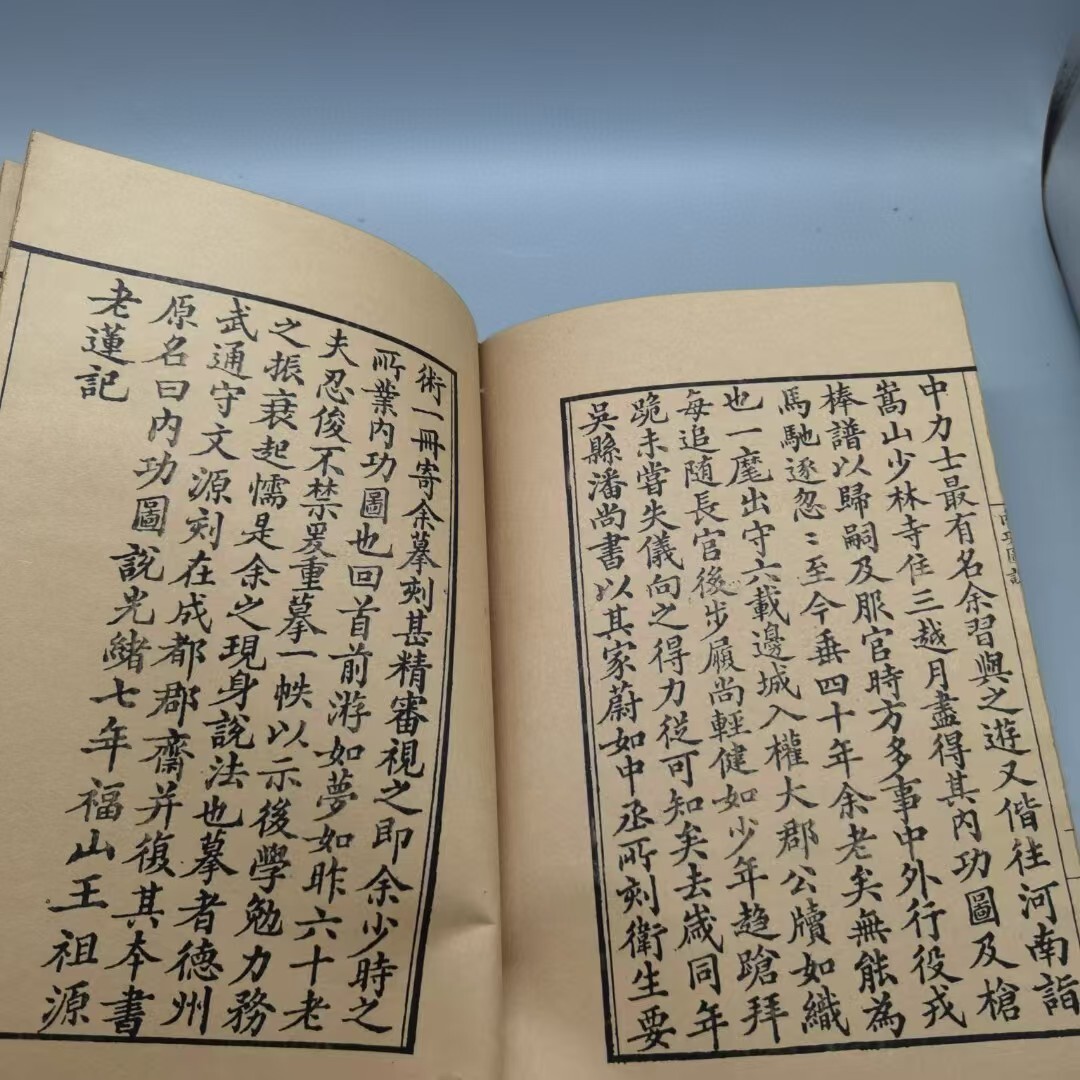 中力士最有名余習與之遊又偕往河南詣
嵩山少林寺住三越月盡得其內功圖及槍
棒譜以歸嗣及服官時方多事中外行役戎
馬馳逐忽〻至今垂四十年余老矣無能為
也一麾出守六載邊城入權大郡公牘如織
每追随長官後步履尚輕健如少年趨蹌拜
跪未嘗失儀向之得力從可知矣去歲同年
吳縣潘尚書以其家蔚如中丞所刻衛生要
術一冊寄余摹刻甚精審視之即余少時之
所業內功圖也回首前游如夢如昨六十老
夫忍俊不禁爰重摹一帙以示後學勉力務
之振衰起懦是余之現身說法也摹者德州
武通守文源刻在成都郡齋并復其本書
原名曰內功圖說光緒七年福山王祖源
老蓮記